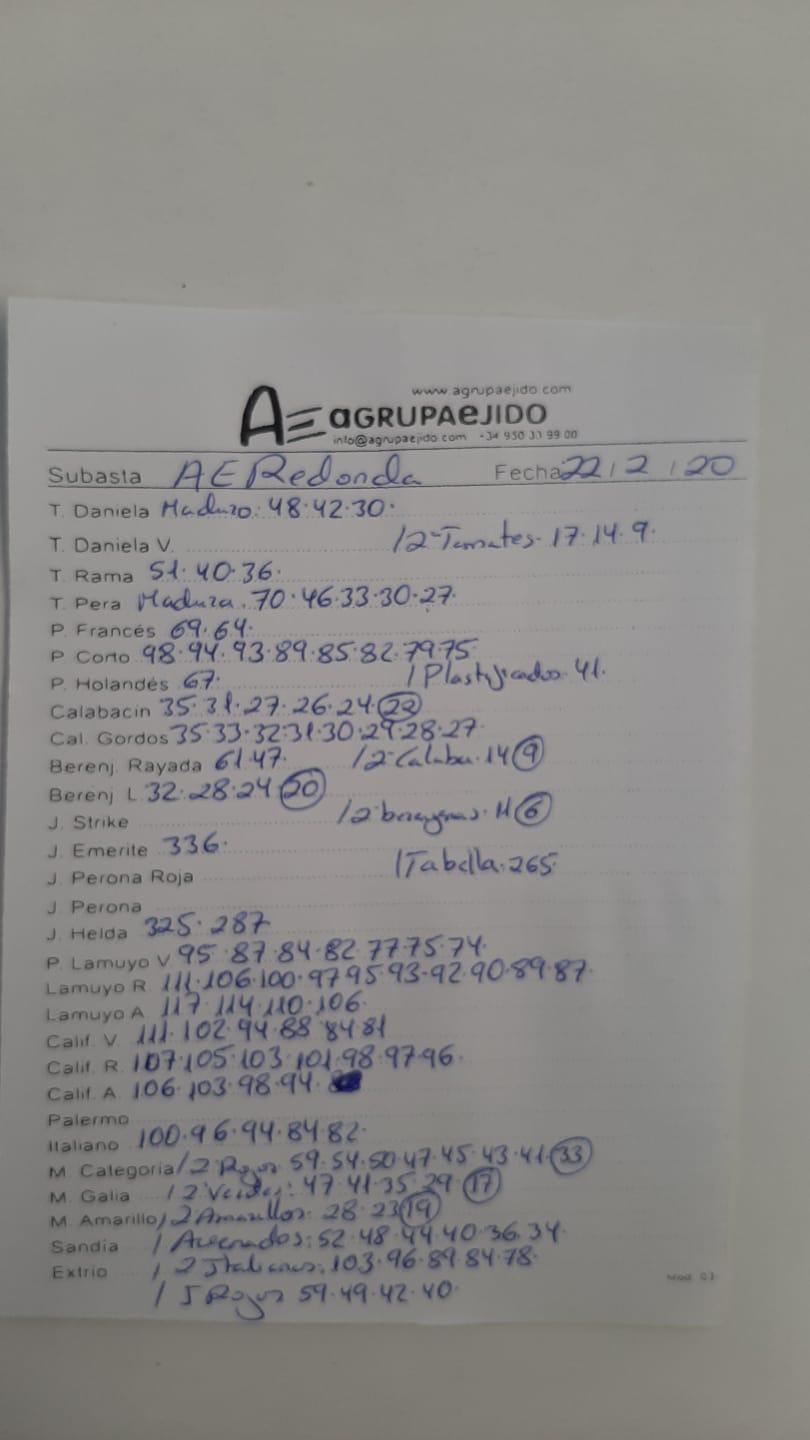 www.agrupaejido.com
AE aGRUPAeJIDO
info@agrupaejido.com +34 950 33 99 00
Subasta AE Redonda Fecha 22/2/20
T. Daniela Maduro: 48·42·30·
T. Daniela V. /2ªTomates· 17·14·9·
T. Rama 51·40·36·
T. Pera Madura. 70·46·33·30·27·
P. Francés 69·64·
P. Corto 98·94·93·89·85·82·79·75
P. Holandés 67· / Plastificados· 41·
Calabacin 35·31·27·26·24·22
Cal. Gordos 35·33·32·31·30·29·28·27·
Berenj. Rayada 61·47· /2ªCalaba·14·9
Berenj L 32·28·24·20
J. Strike /2ª 11·6
J. Emerite 336·
J. Perona Roja /Tabella·265·
J. Perona
J. Helda 325·287
P. Lamuyo V 95·87·84·82·77·75·74·
Lamuyo R. 111·106·100·97·95·93·92·90·89·87·
Lamuyo A. 117·114·110·106·
Calif. V. 111·102·94·88·84·81
Calif. R. 107·105·103·101·98·97·96·
Calif. A. 106·103·98·94·
Palermo
Italiano 100·96·94·84·82·
M. Categoria /2 Rojos 59·54·50·47·45·43·41·33
M. Galia /2 Verdes: 47·41·35·29·17
M. Amarillo /2 Amarillos: 28·23·19
Sandia / Asurcados: 52·48·44·40·36·34·
Extrio / 2 Italianos: 103·96·89·84·78·
/ 5 Rojos 59·49·42·40·
Mod. 03